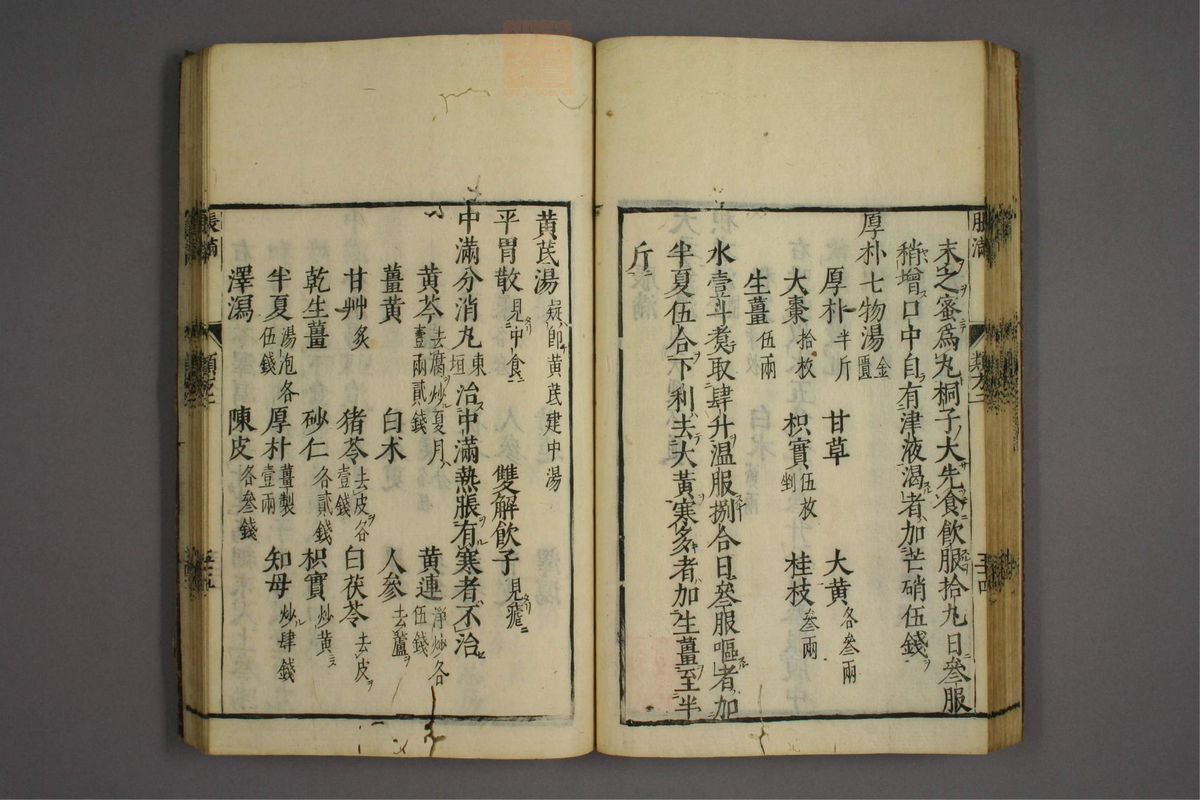 末之蜜爲丸桐子大先食飲服拾丸日叄服
稍增口中自有津液渴者加芒硝伍錢
厚朴七物湯金匱
厚朴半斤 甘草 大黄各叄兩
大棗拾枚 枳實伍枚剉 桂枝叄兩
生薑伍兩
水壹斗煑取肆升温服捌合日叄服嘔者加
半夏伍合下利去大黄寒多者加生薑至半
斤
黄芪湯疑即黄芪建中湯
平胃散見中食 雙解飲子見瘧
中滿分消丸東垣治中滿熱脹有寒者不治
黄芩去腐炒夏月壹兩貳錢 黄連淨炒各伍錢
薑黄 白术 人參去蘆
甘艸炙 猪苓去皮各壹錢 白茯苓去皮
乾生薑 砂仁各貳錢 枳實炒黄
半夏湯泡各伍錢 厚朴薑製壹兩 知母炒肆錢
澤瀉 陳皮各叄錢